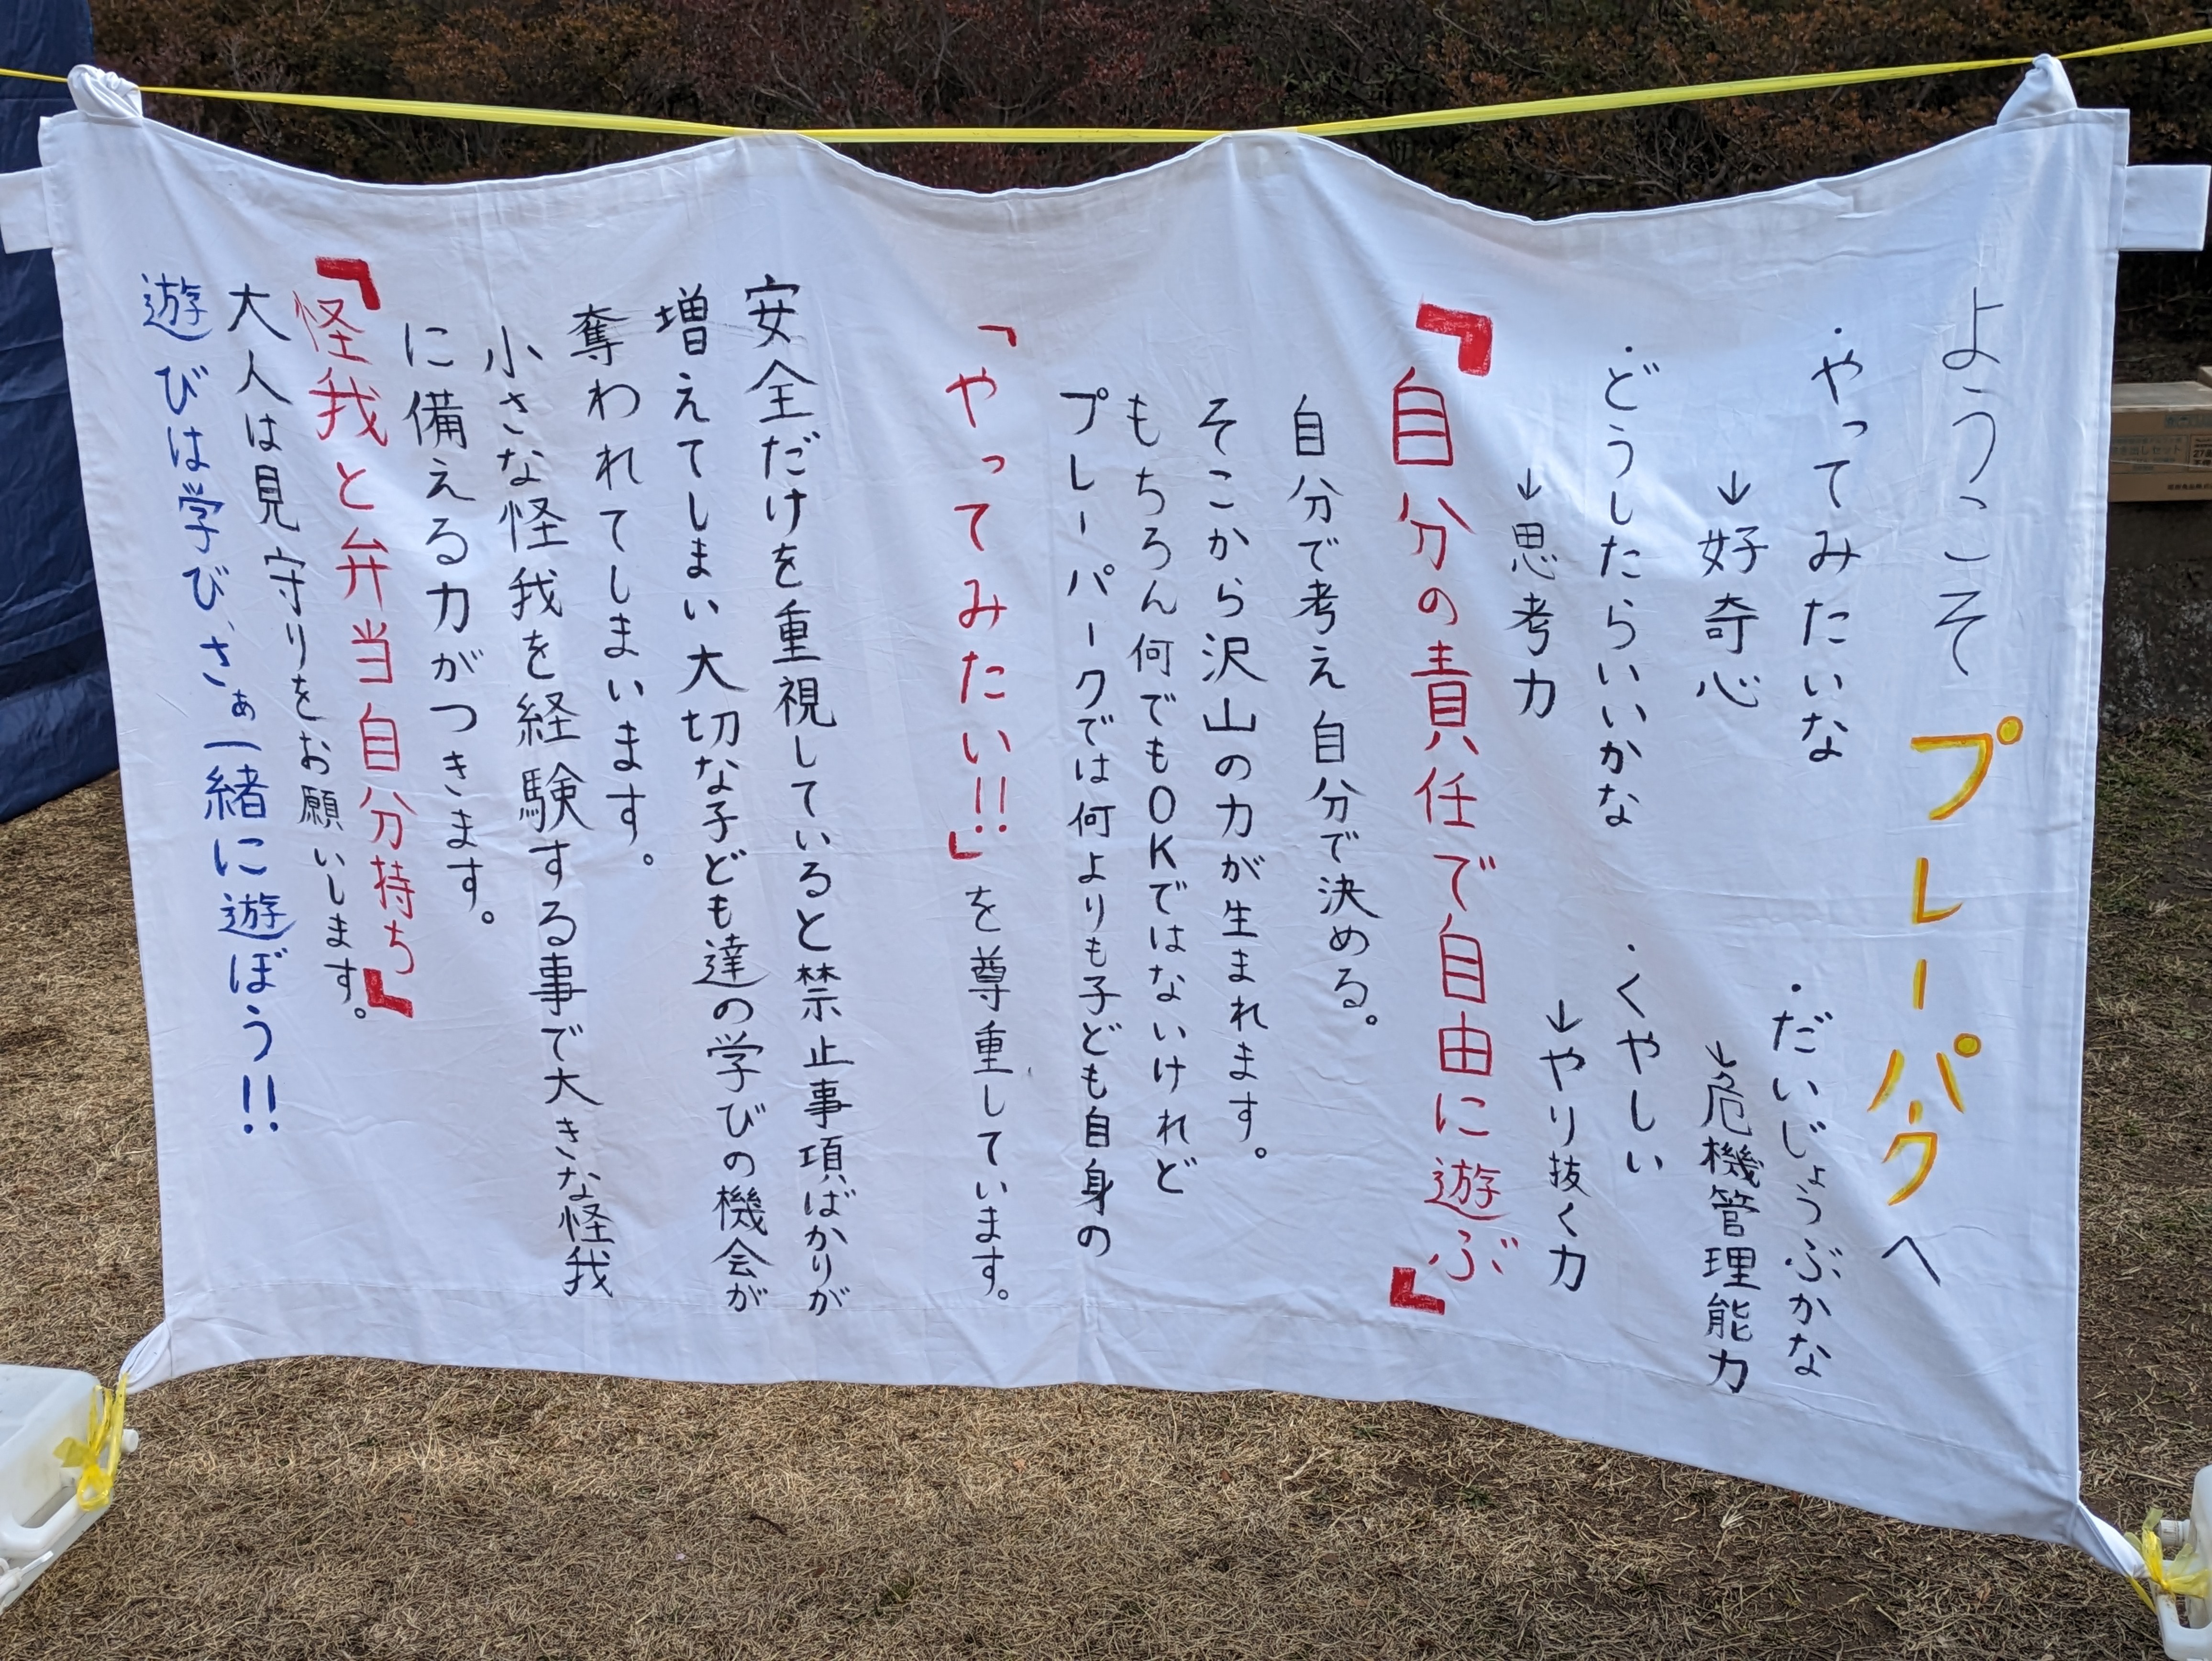 ようこそプレーパークへ
・やってみたいな
↓好奇心
・だいじょうぶかな
↓危機管理能力
・どうしたらいいかな
↓思考力
・くやしい
↓やり抜く力
『自分の責任で自由に遊ぶ』
自分で考え自分で決める。
そこから沢山の力が生まれます。
もちろん何でもOKではないけれど
プレーパークでは何よりも子ども自身の
「やってみたい!!」を尊重しています。
安全だけを重視していると禁止事項ばかりが
増えてしまい大切な子ども達の学びの機会が
奪われてしまいます。
小さな怪我を経験する事で大きな怪我
に備える力がつきます。
『怪我と弁当自分持ち』
大人は見守りをお願いします。
遊びは学び、さぁ一緒に遊ぼう!!